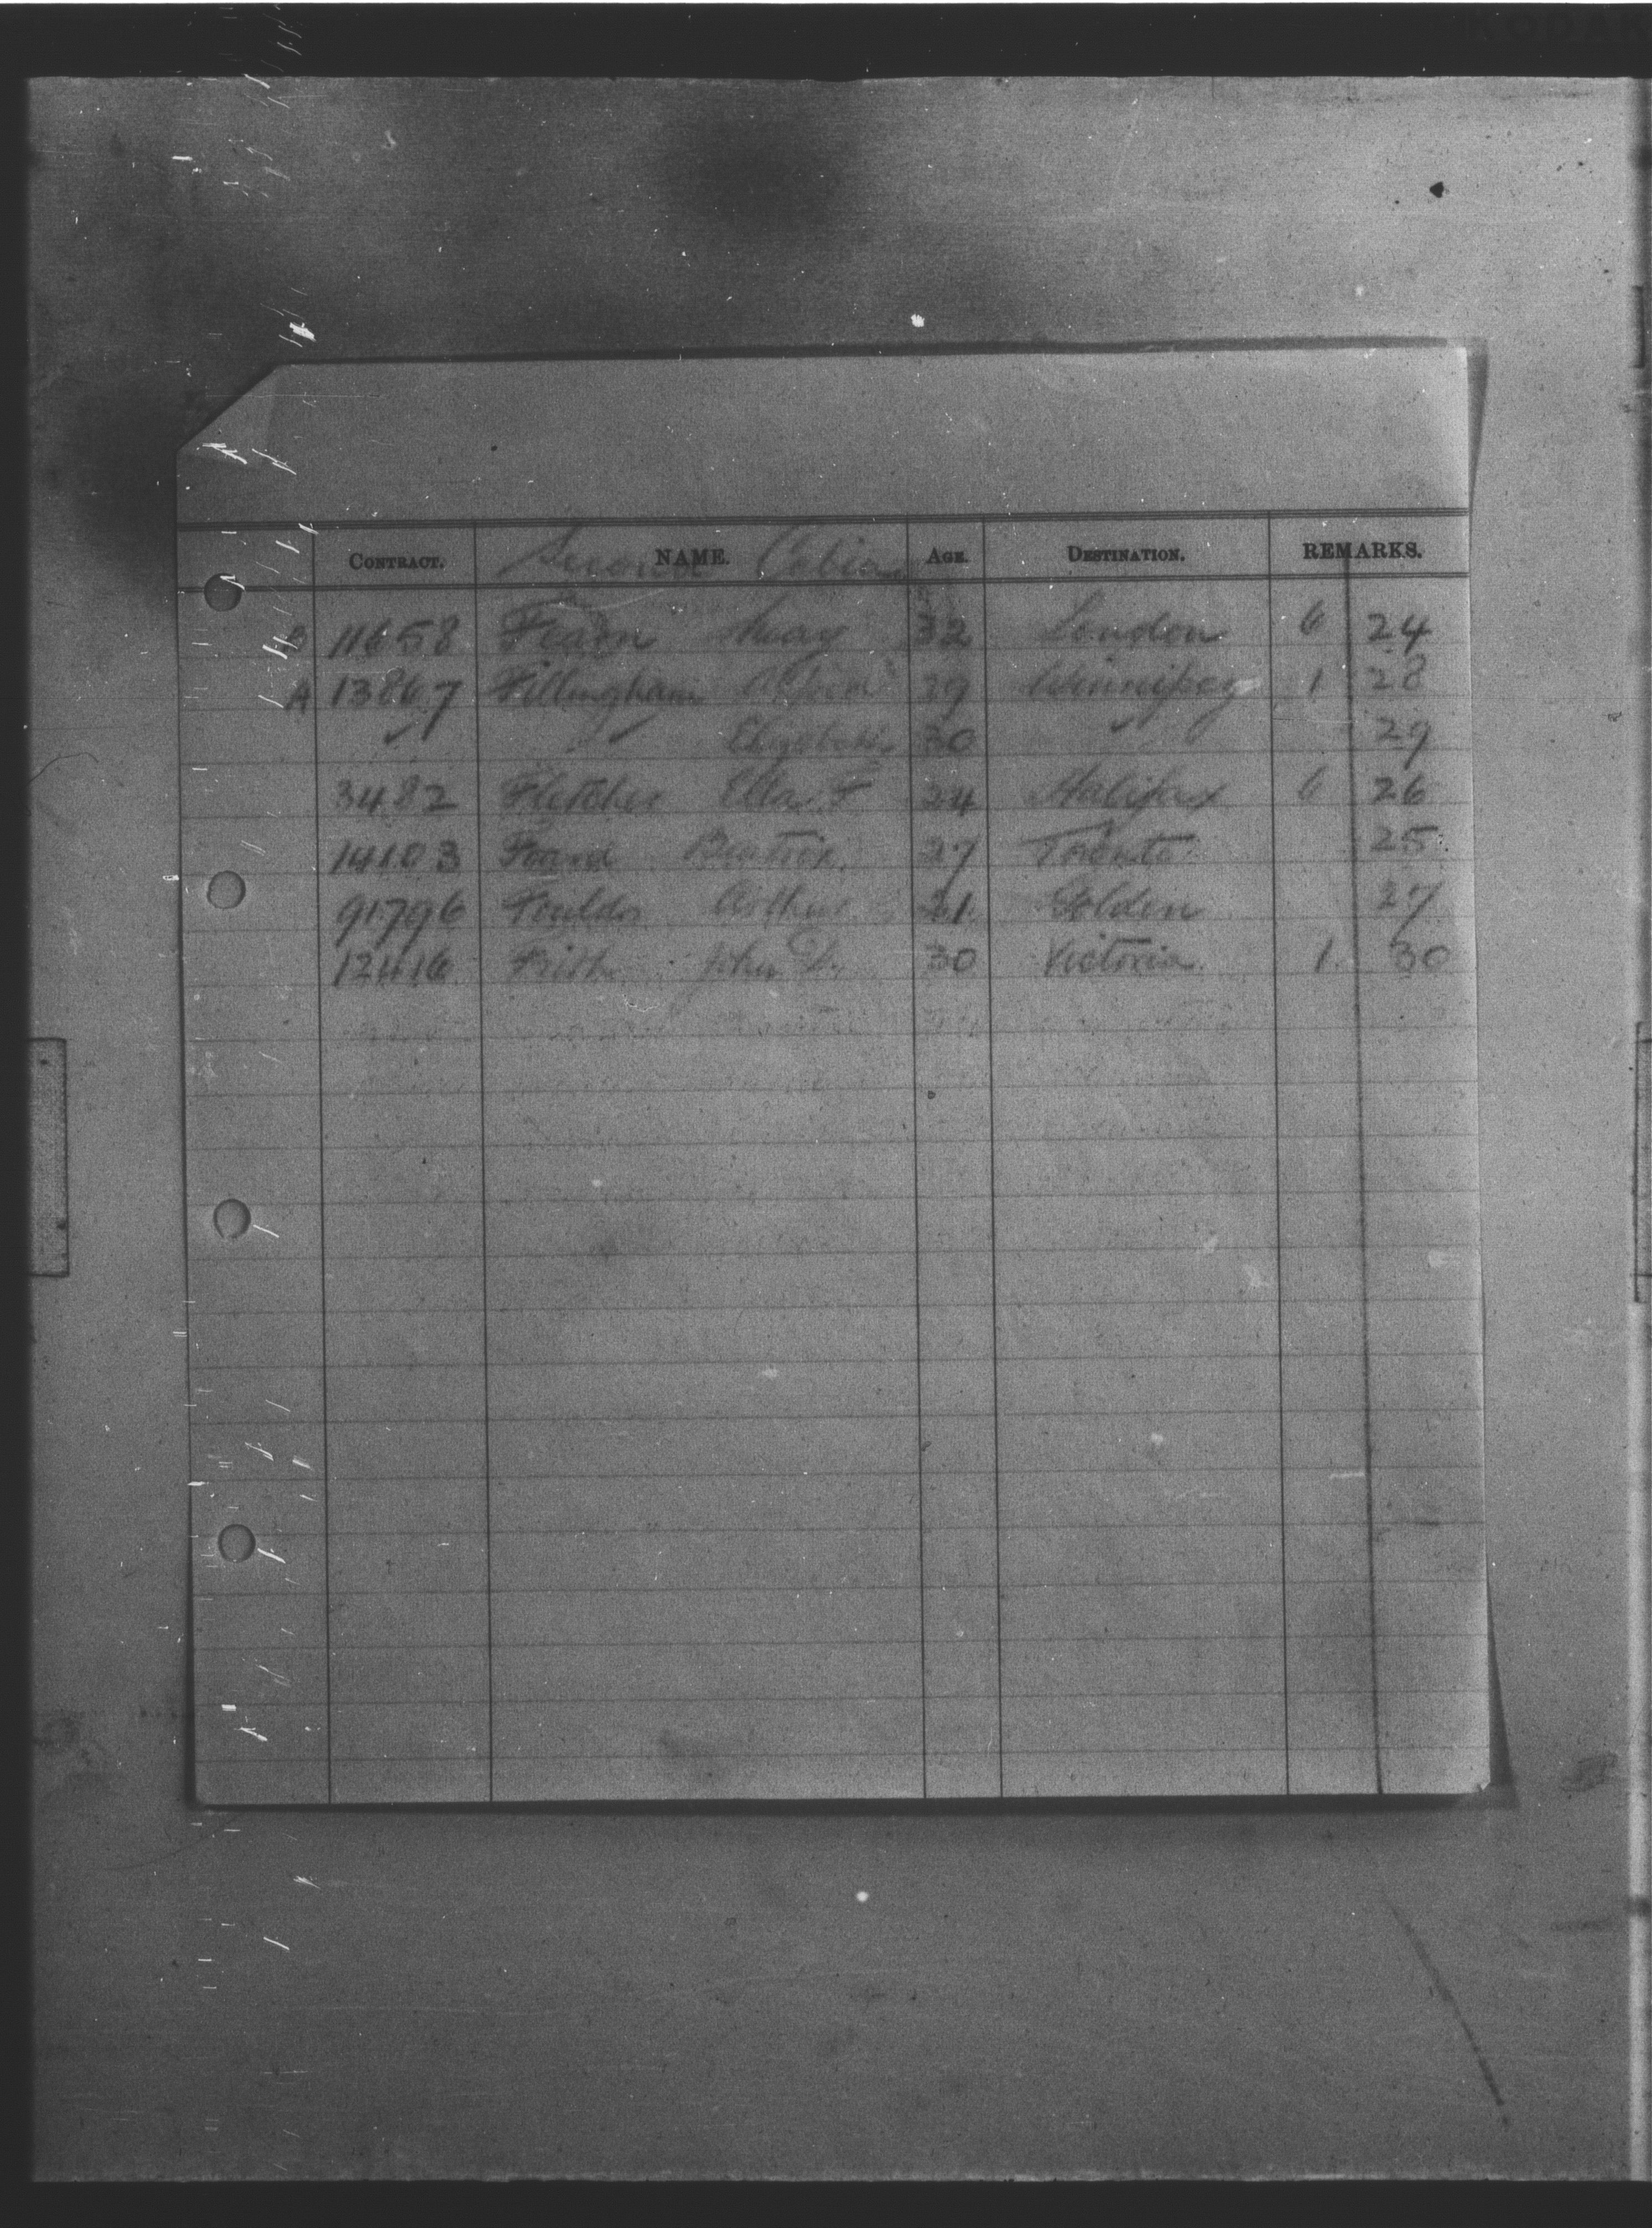 Second Cabin
CONTRACT. NAME. AGE. DESTINATION. REMARKS.
B 11658 Fearn May 32 London 6 24
A 13867 Fillingham Alfred 29 Winnipeg 1 28
✓ ✓ Elizabeth 30 ✓ 29
3482 Fletcher Ella F 24 Halifax 6 26
14103 Foard Beatrix 27 Toronto 25
91796 Foulds Arthur 21 Golden 27
12416 Frith John D. 30 Victoria 1 30